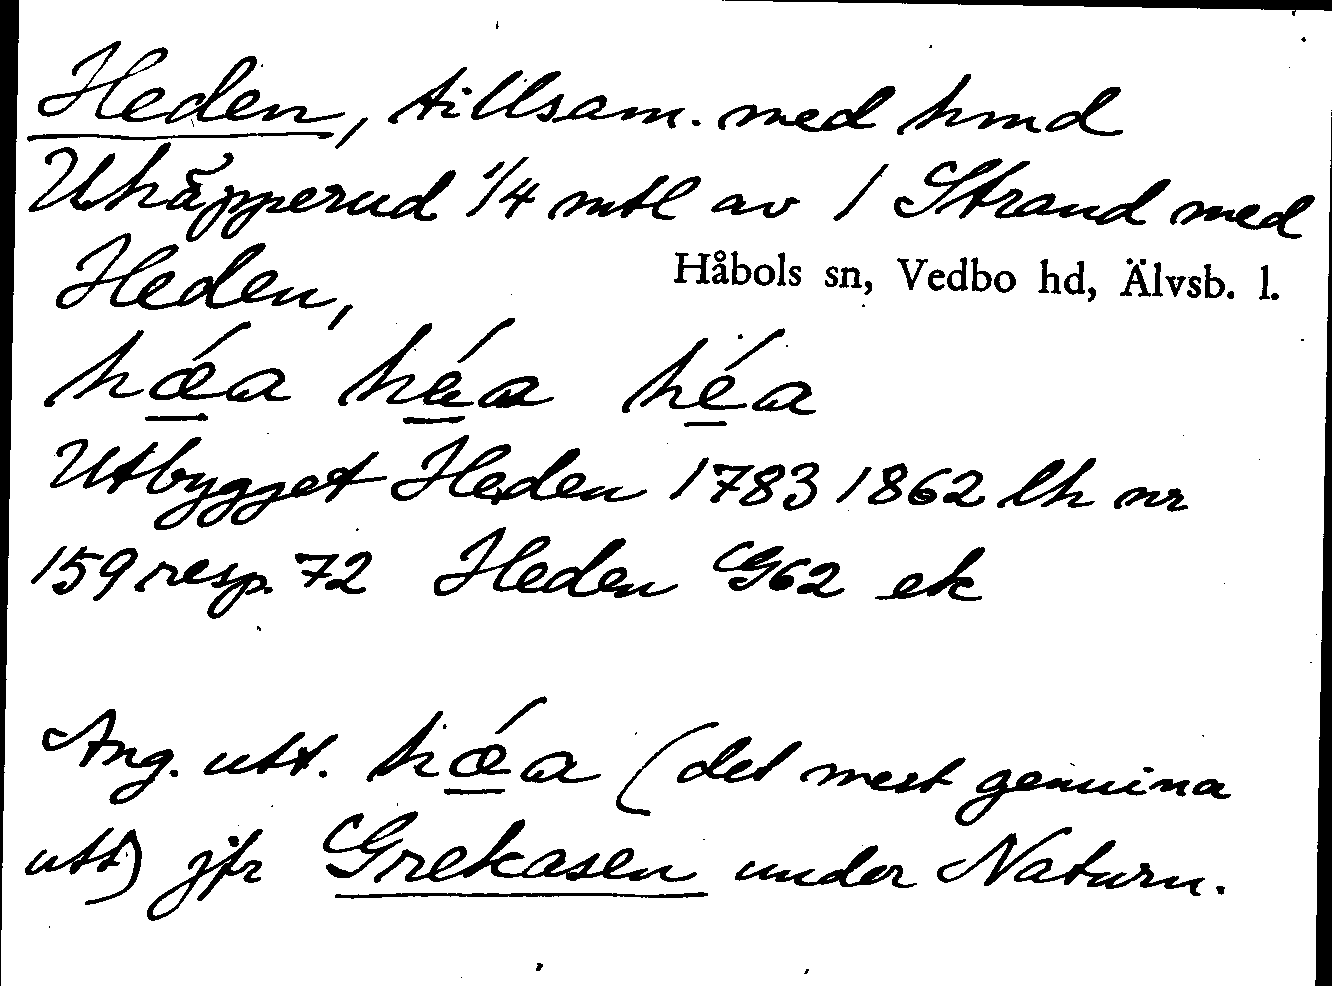 Heden, tillsam. med hmd
Uhäpperud 1/4 mtl av 1 Strand med
Heden,
Håbols sn, Vedbo hd, Älvsb. l.
hǽa héa héa
Utbygget Heden 1783 1862 lh nr
159 resp. 72 Heden G62 ek
Ang. utt. hǽa (det mest genuina
utt) jfr Grekasen under Naturn.